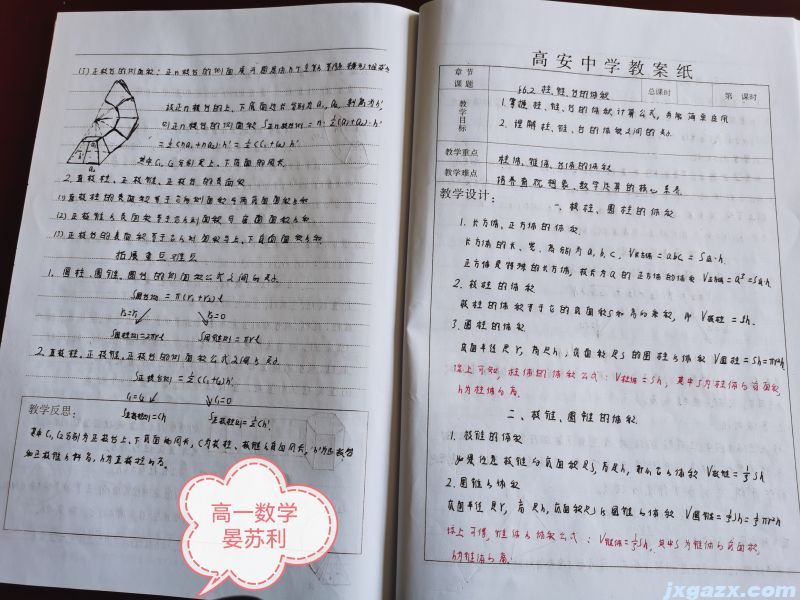 (3)正棱台的侧面积:正n棱台的侧面展开图是由n个全等的
设正n棱台的上、下底面边长分别为a₁,a₂,斜高为h'
则正n棱台的侧面积S正n棱台侧=n·½(a₁+a₂)·h'
=½(na₁+na₂)h'=½(C₁+C₂)h'
其中C₁,C₂分别是上、下底面的周长
2.直棱柱、正棱锥、正棱台的表面积
(1)直棱柱的表面积等于它的侧面积与两底面面积的和
(2)正棱锥的表面积等于它的侧面积与底面面积的和
(3)正棱台的表面积等于它的侧面积与上、下底面面积的和
拓展重点难点
1.圆柱、圆锥、圆台的侧面积公式之间的关系
S圆台侧=π(r₁+r₂)l
r₁=r₂ r₁=0
S圆柱侧=2πrl S圆锥侧=πrl
2.直棱柱,正棱锥,正棱台的侧面积公式之间的关系
S正棱台侧=½(C₁+C₂)h'
C₁=C₂ C₁=0
S直棱柱侧=Ch S正棱锥侧=½Ch'
教学反思:
其中C₁,C₂分别为正棱台上、下底面的周长,C为棱柱、棱锥的底面周长,h'为正棱台
和正棱锥的斜高,h为直棱柱的高.
高一数学
晏苏利
高安中学教案纸
章节
课题
§6.2 柱、锥、台的体积
总课时
第 课时
教学目标
1.掌握柱、锥、台的体积计算公式,会解简单应用
2.理解柱、锥、台的体积之间的关系
教学重点
柱体、锥体、台体的体积
教学难点
培养直观想象、数学运算的核心素养
教学设计:
一、棱柱、圆柱的体积
1.长方体、正方体的体积
长方体的长、宽、高分别为a,b,c,V长方体=abc=S底·h
正方体是特殊的长方体,棱长为a的正方体的体积V正方体=a³=S底·h
2.棱柱的体积
棱柱的体积等于它的底面积S和高h的乘积,即V棱柱=Sh.
3.圆柱的体积
底面半径是r,高是h,底面积是S的圆柱的体积V圆柱=Sh=πr²h
综上可知,柱体的体积公式:V柱体=Sh,其中S为柱体的底面积,
h为柱体的高.
二、棱锥、圆锥的体积
1.棱锥的体积
如果任意棱锥的底面积是S,高是h,那么它的体积V棱锥=⅓Sh
2.圆锥的体积
底面半径是r,高是h,底面积是S的圆锥的体积V圆锥=⅓Sh=⅓πr²h
综上可得,锥体的体积公式:V锥体=⅓Sh,其中S为锥体的底面积,
h为锥体的高.
jxgazx.com